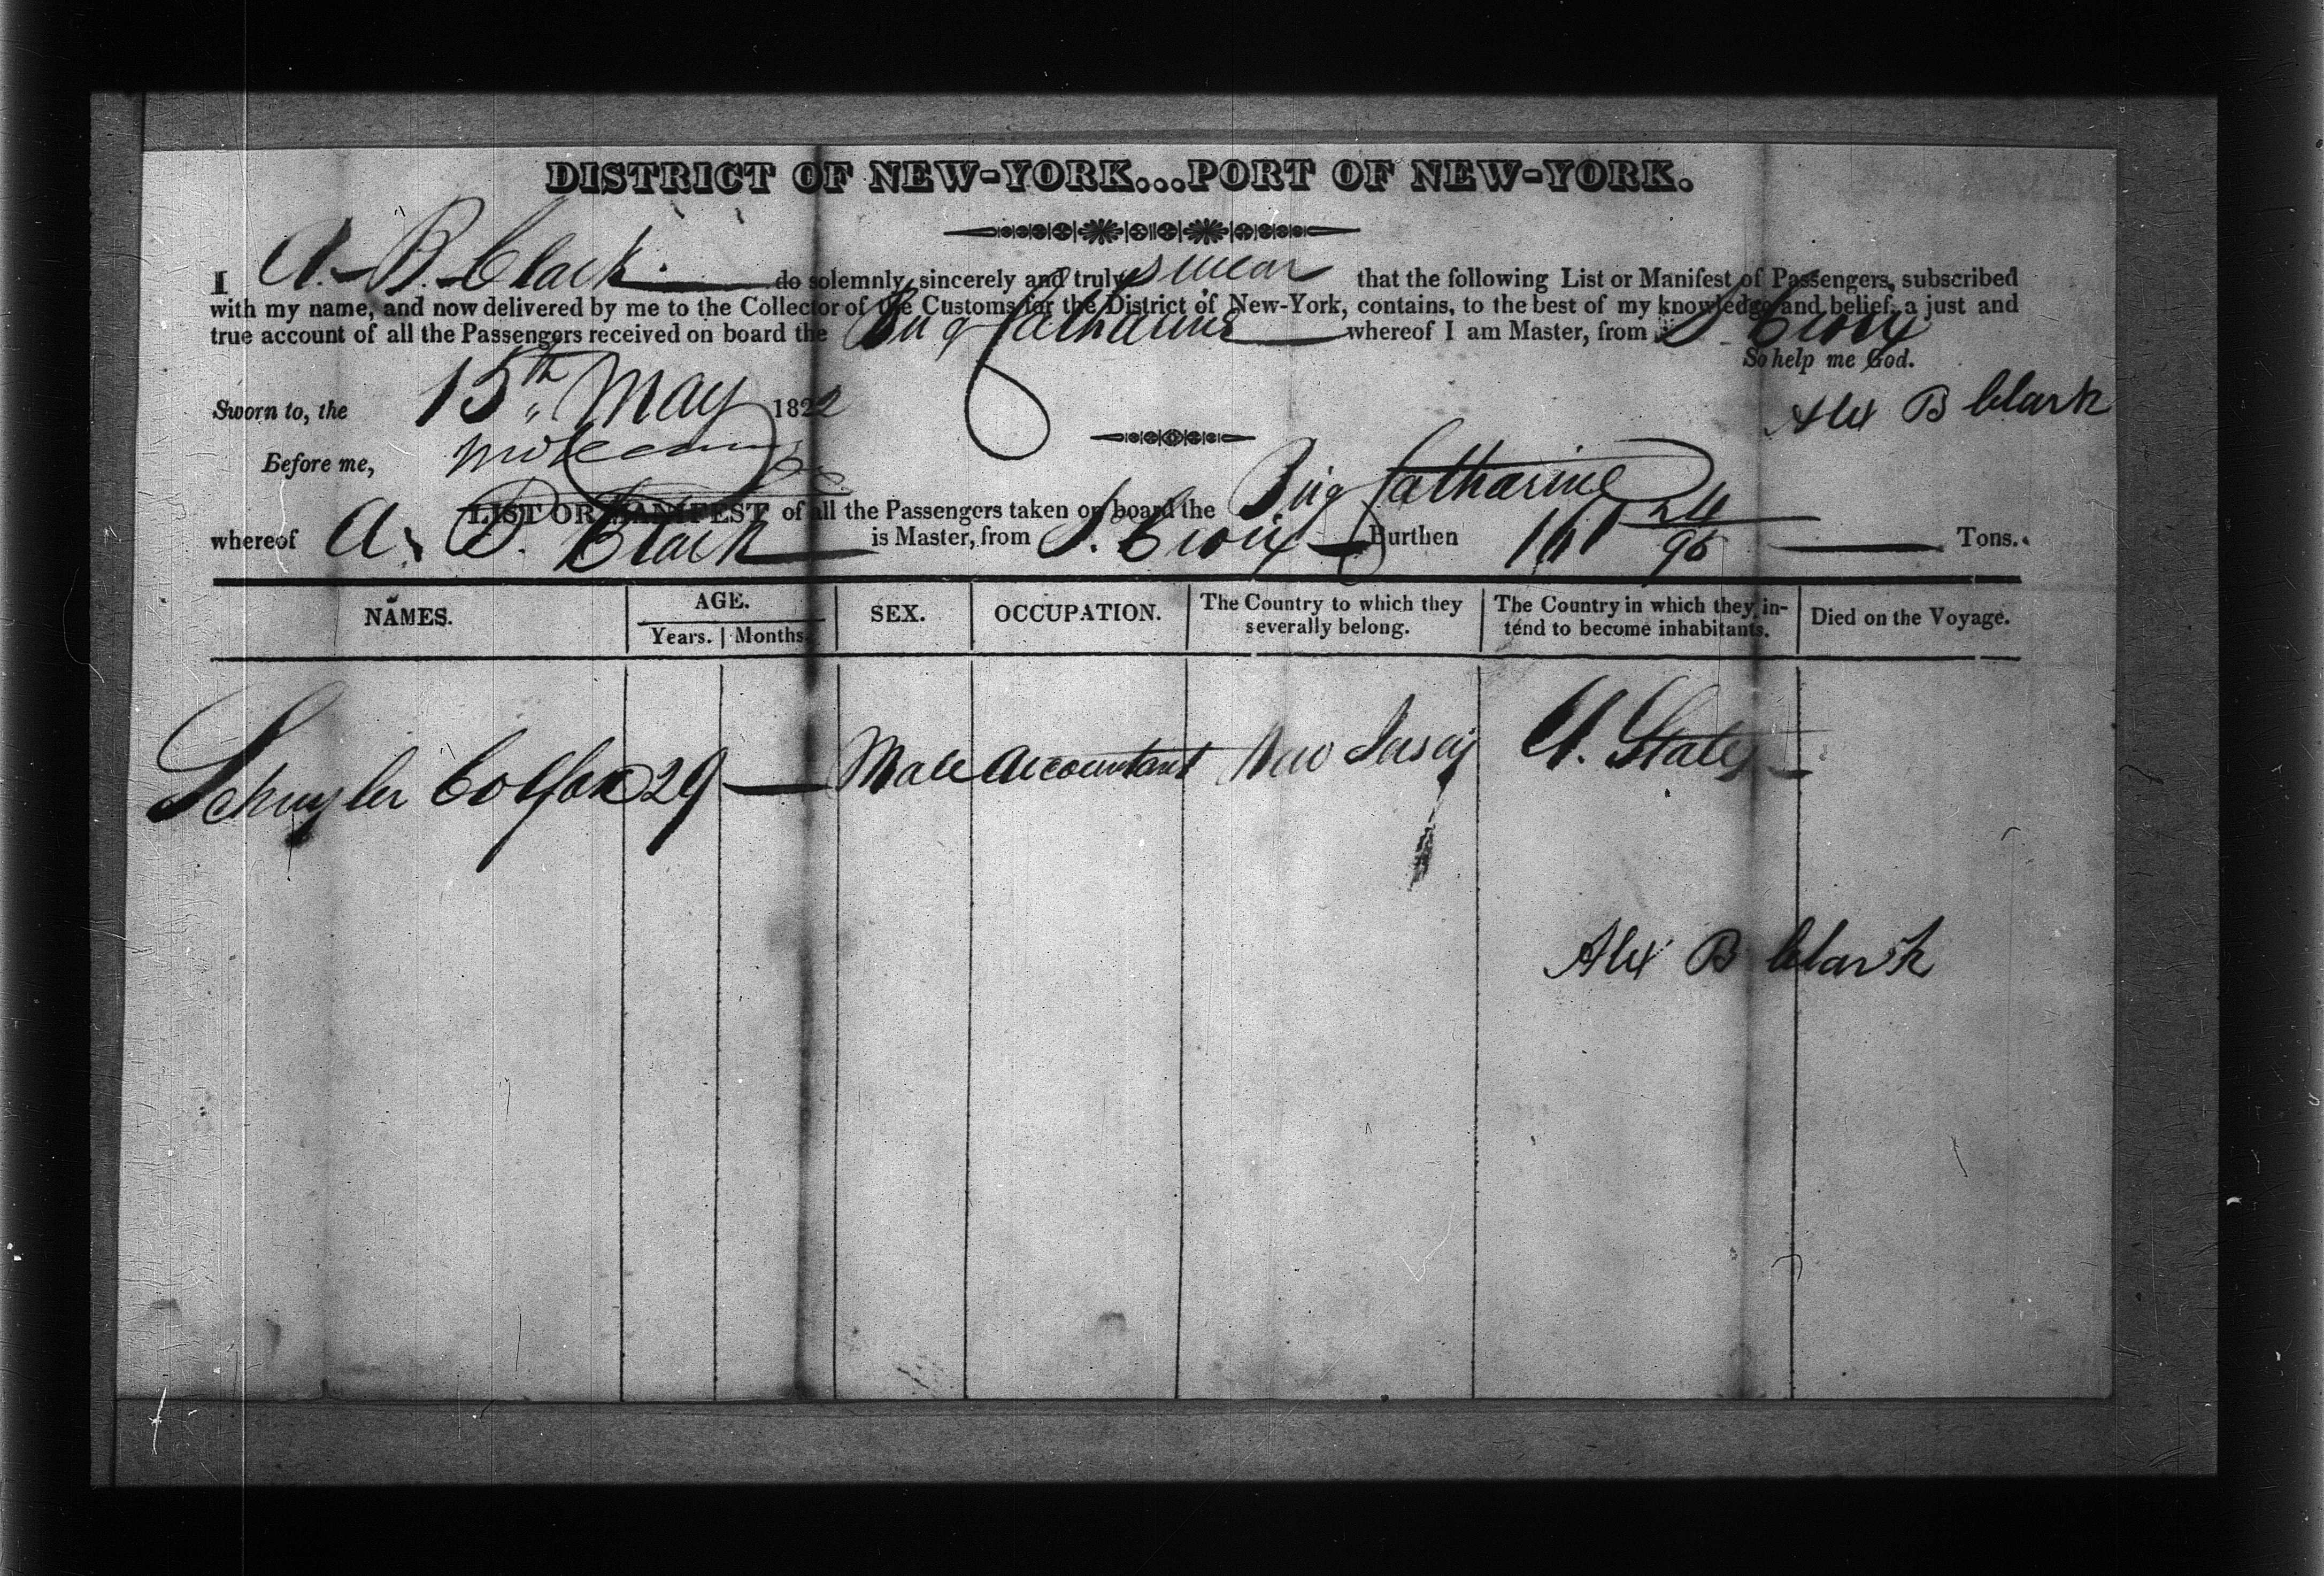 DISTRICT OF NEW-YORK...PORT OF NEW-YORK.
I A. B. Clark. do solemnly, sincerely and truly swear that the following List or Manifest of Passengers, subscribed
with my name, and now delivered by me to the Collector of the Customs for the District of New-York, contains, to the best of my knowledge and belief, a just and
true account of all the Passengers received on board the Brig Catharine whereof I am Master, from S. Croix
So help me God.
Sworn to, the 15th May 1822
Alex B Clark
Before me,
LIST OR MANIFEST of all the Passengers taken on board the Brig Catharine
whereof A. B. Clark is Master, from S. Croix Burthen 161 24/95 Tons.
NAMES. AGE. SEX. OCCUPATION. The Country to which they severally belong. The Country in which they intend to become inhabitants. Died on the Voyage.
Years. Months.
Schuyler Colfax 29 — Male Accountant New Jersey U. States —
Alex B Clark